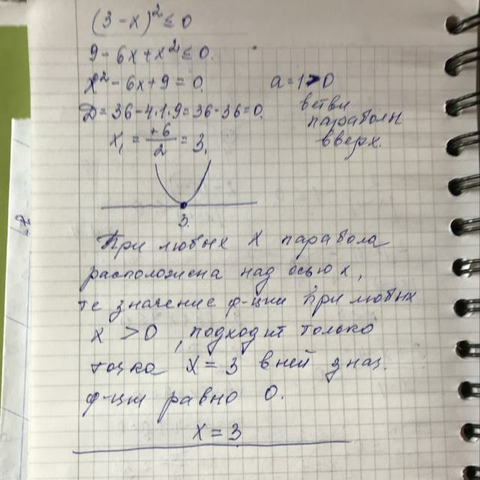 (3-x)² ≤ 0
9-6x+x² ≤ 0.
x²-6x+9=0.
a=1>0
ветви
парабол
вверх.
D=36-4·1·9=36-36=0.
x₁ = +6/2 = 3.
3.
При любых x парабола
расположена над осью x,
те значение ф-ции при любых
x > 0, подходит только
точка x=3 в ней знач.
ф-ции равно 0.
x=3